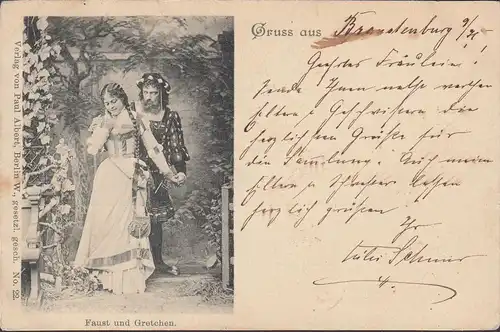 Verlag von Paul Albert, Berlin W., gesetzl. gesch. No. 22.
Faust und Gretchen.
Gruss aus Brandenburg 9/
Geehrtes Fräulein!
Sende Ihnen nebst werthen
Eltern & Geschwistern die
herzlichsten Grüße für
die Sammlung! Auch meine
Eltern & Schwester lassen
herzlich grüßen.
Ihr